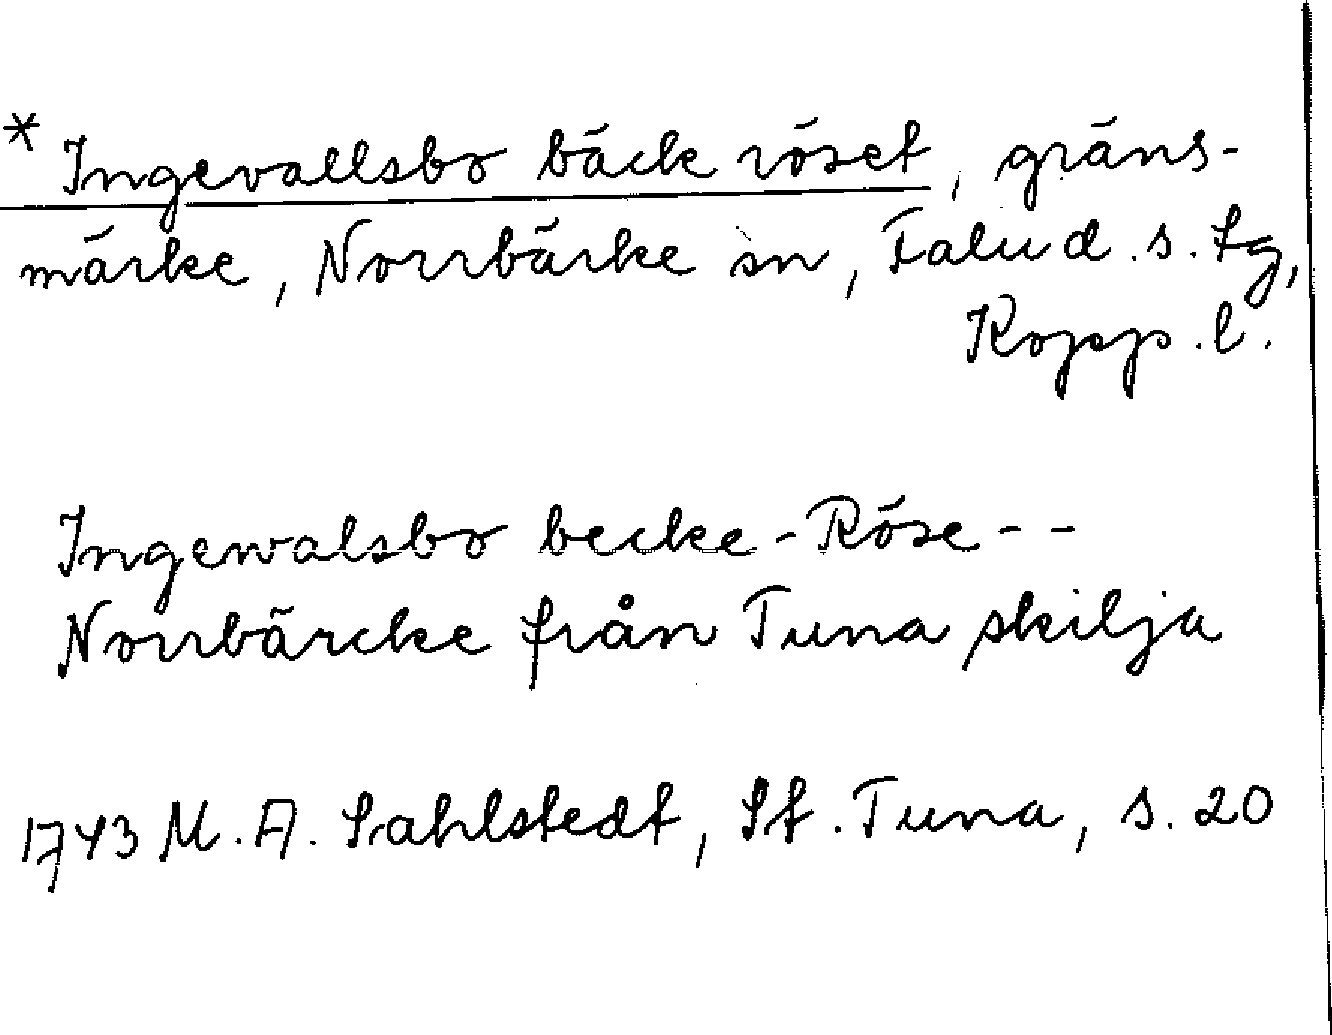 * Ingevallsbo bäck röset, gräns-
märke, Norrbärke sn, Falu d. s. tg,
Kopp. l.
Ingewalsbo becke-Röse--
Norrbärcke från Tuna skilja
1743 M. A. Sahlstedt, St. Tuna, s. 20